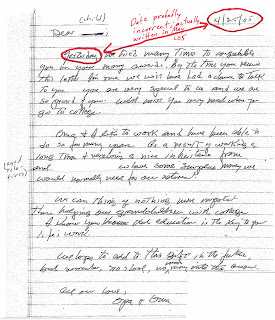 (child)
Date probably incorrect; actually written in May 05
4/25/05
Dear
Yesterday we tried many times to congratulate
you on your many awards. By the time you receive
this letter for one we will have had a chance to talk
to you. you are very special to us and we are
so proud of you. Will miss you very much when you
go to college.
Oma & I like to work and have been able to
do so for many years. As a result of working a
long time & receiving a nice inheritance from
(aged relatives)
and we have some surplus money we
would normally need for our retirement.
We can think of nothing more important
than helping our grandchildren with college.
I know you know that education is the key to your
life's work.
We hope to add to this gift in the future,
but remember, no school, no money until the
All our love,
Opa & Oma